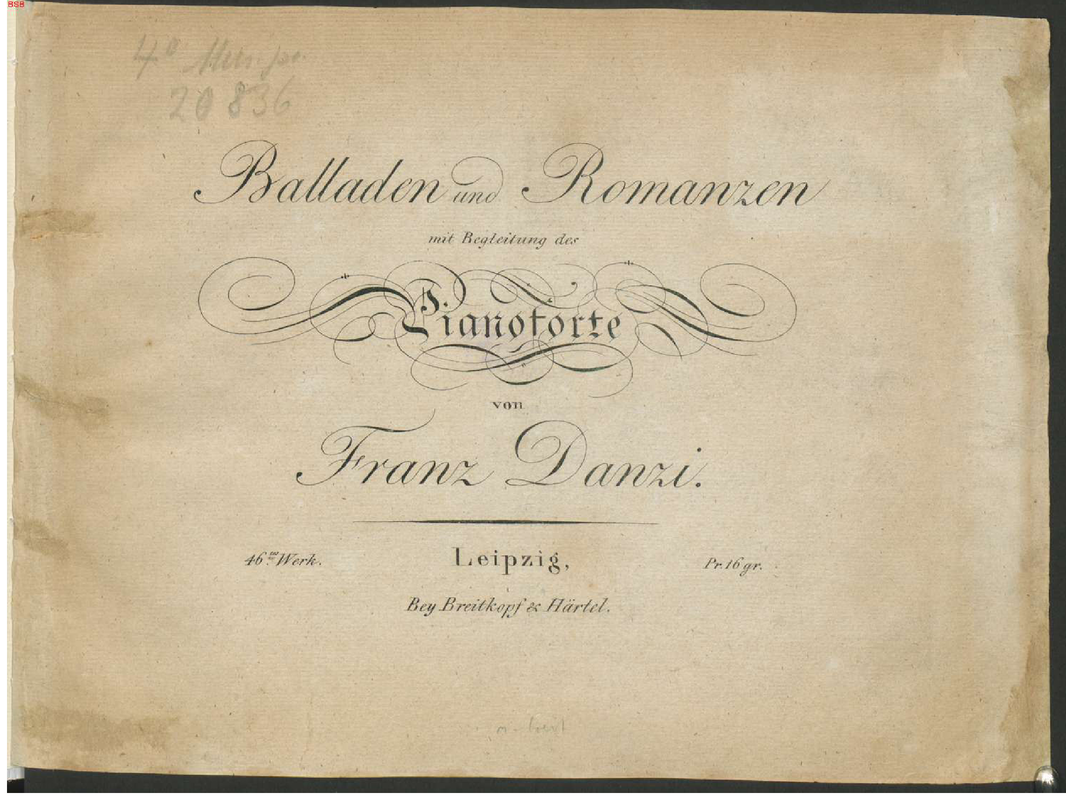 BSB
4° Mus. pr.
20 836
Balladen und Romanzen
mit Begleitung des
Pianoforte
von
Franz Danzi.
46tes Werk. Leipzig, Pr. 16 gr.
Bey Breitkopf & Härtel.